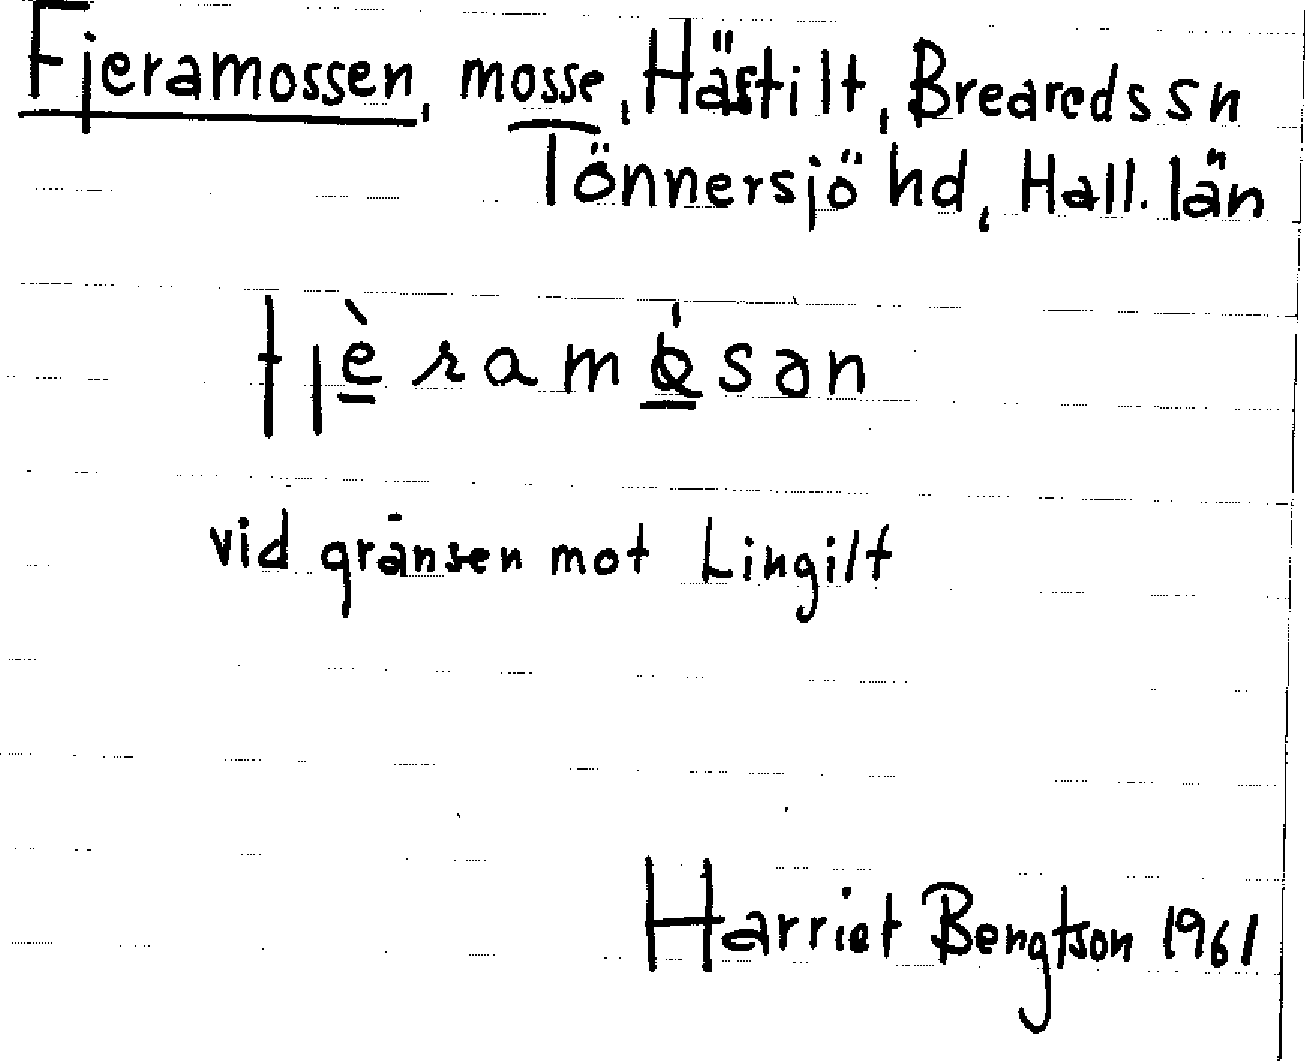 Fjeramossen, mosse, Hästilt, Breareds sn
Tönnersjö hd, Hall. län
fjèramósən
vid gränsen mot Lingilt
Harriet Bengtson 1961